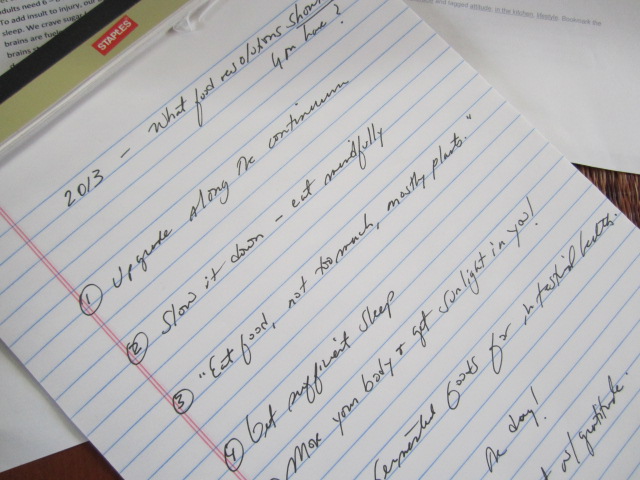 dults need 6
To add insult to injury, our
sleep. We crave sugar
brains are fuel
brains
STAPLES
and tagged attitude, in the kitchen, lifestyle. Bookmark the
2013 - What food resolutions should
you have?
① Upgrade along the continuum
② Slow it down - eat mindfully
③ "Eat food, not too much, mostly plants."
④ Get sufficient sleep
Move your body & get sunlight in you!
Fermented foods for intestinal health.
the day!
w/ gratitude.